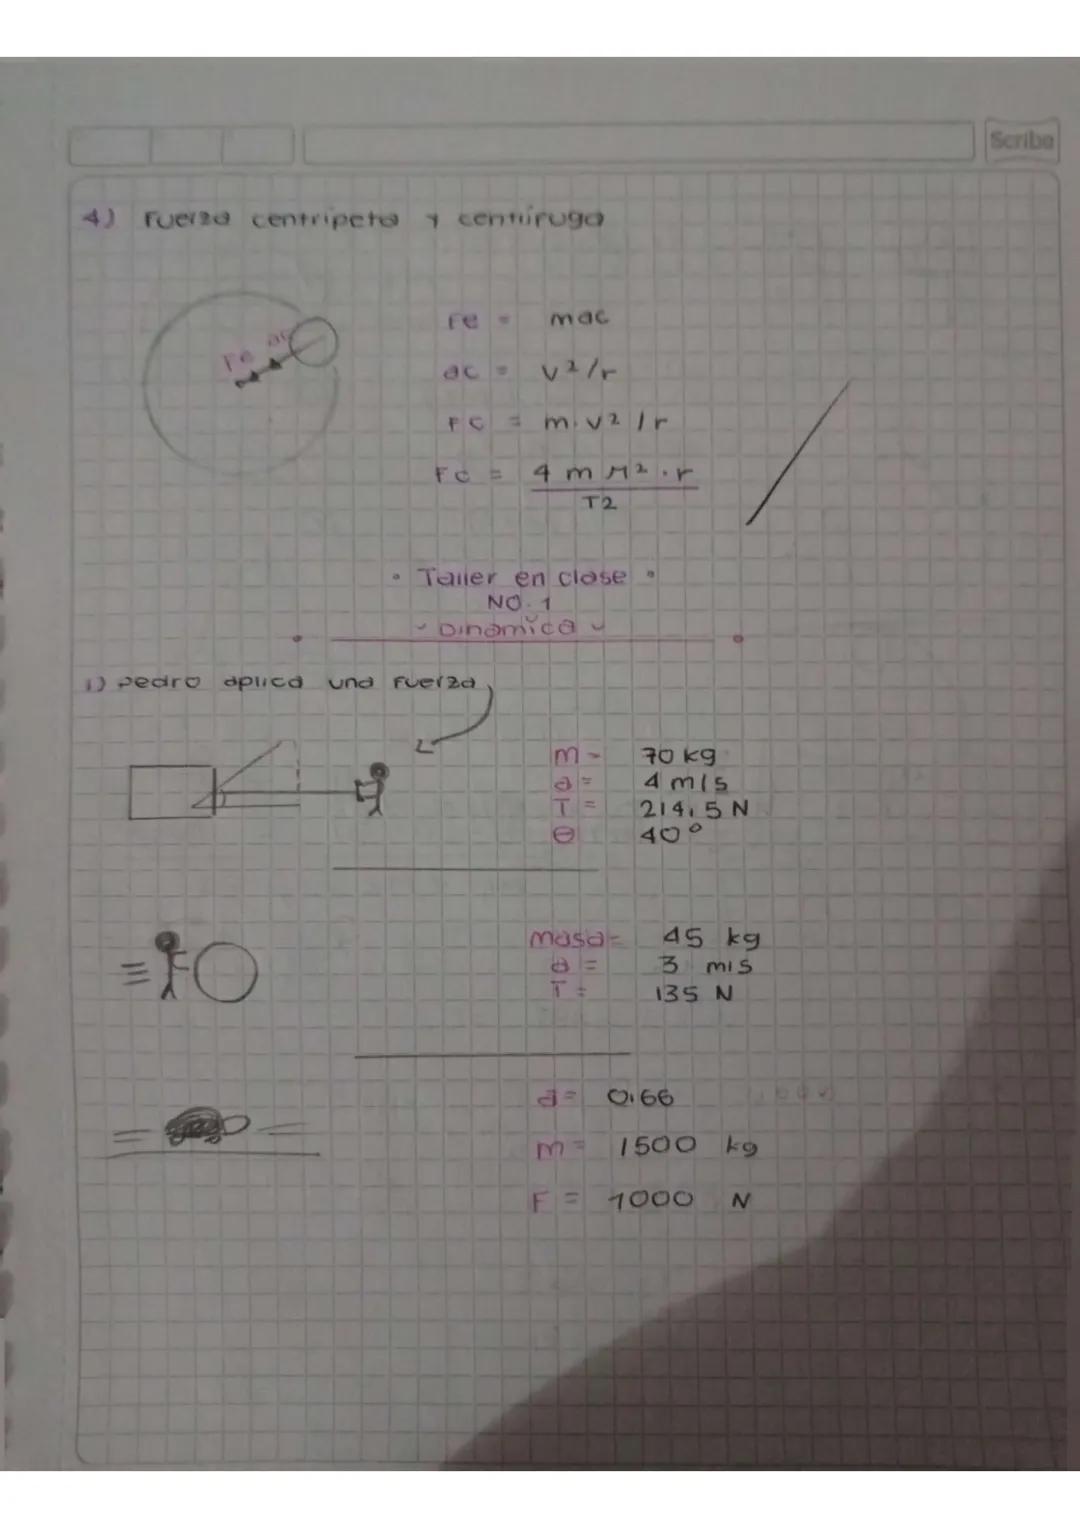 Scribe
4) Fuerza centripeta y centrifuga
Fc ac
Fc = mac
ac = v²/r
Fc = m.v²/r
Fc = 4 m π².r
T2
• Taller en clase •
NO. 1
- Dinamica -
1) Pedro aplica una fuerza
m- 70 kg
a= 4 m/s
T= 214,5 N
θ 40°
masa= 45 kg
a= 3 m/s
T= 135 N
a= 0,66
m= 1500 kg
F= 1000 N